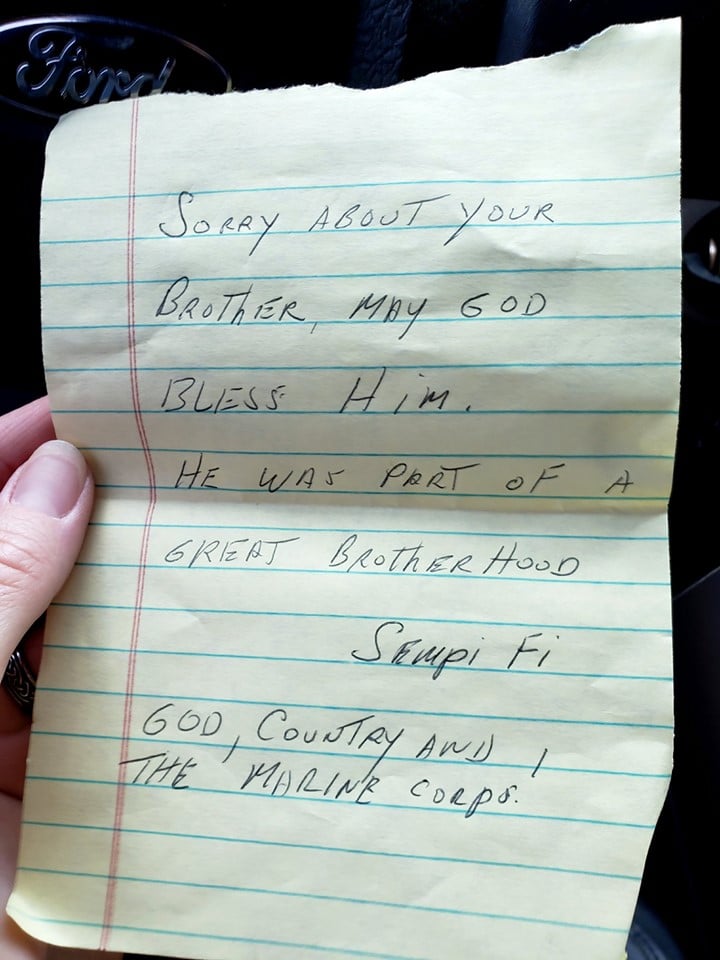 Ford
SORRY ABOUT YOUR
BROTHER, MAY GOD
BLESS HIM.
HE WAS PART OF A
GREAT BROTHERHOOD
SEMPI Fi
GOD, COUNTRY AND,
THE MARINE CORPS.